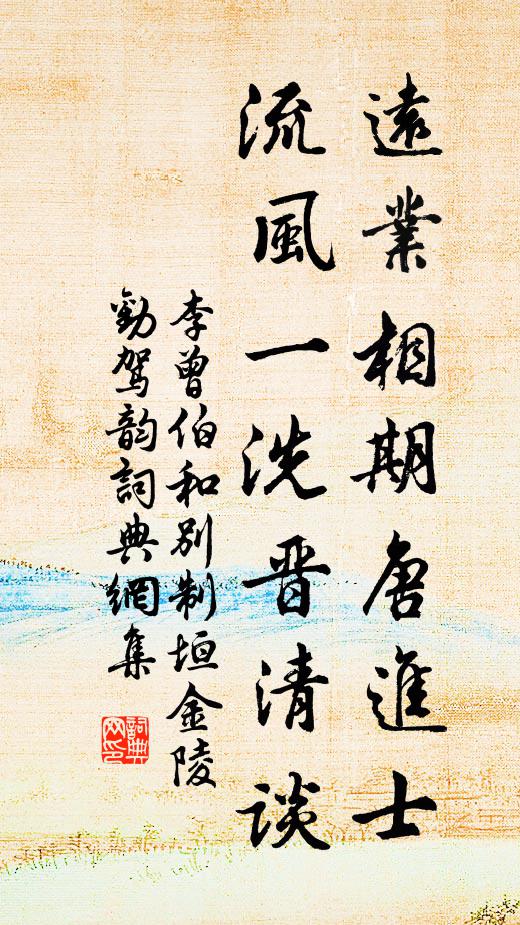 遠業相期唐進士
流風一洗晋清談
李曾伯和別制垣金陵
勸駕韵詞典網集
詞典網印